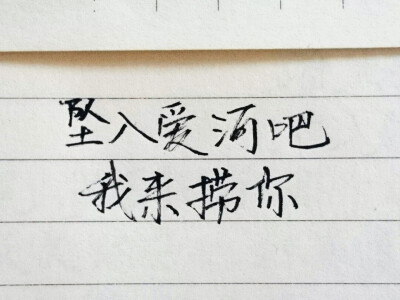 坠入爱河吧
我来捞你